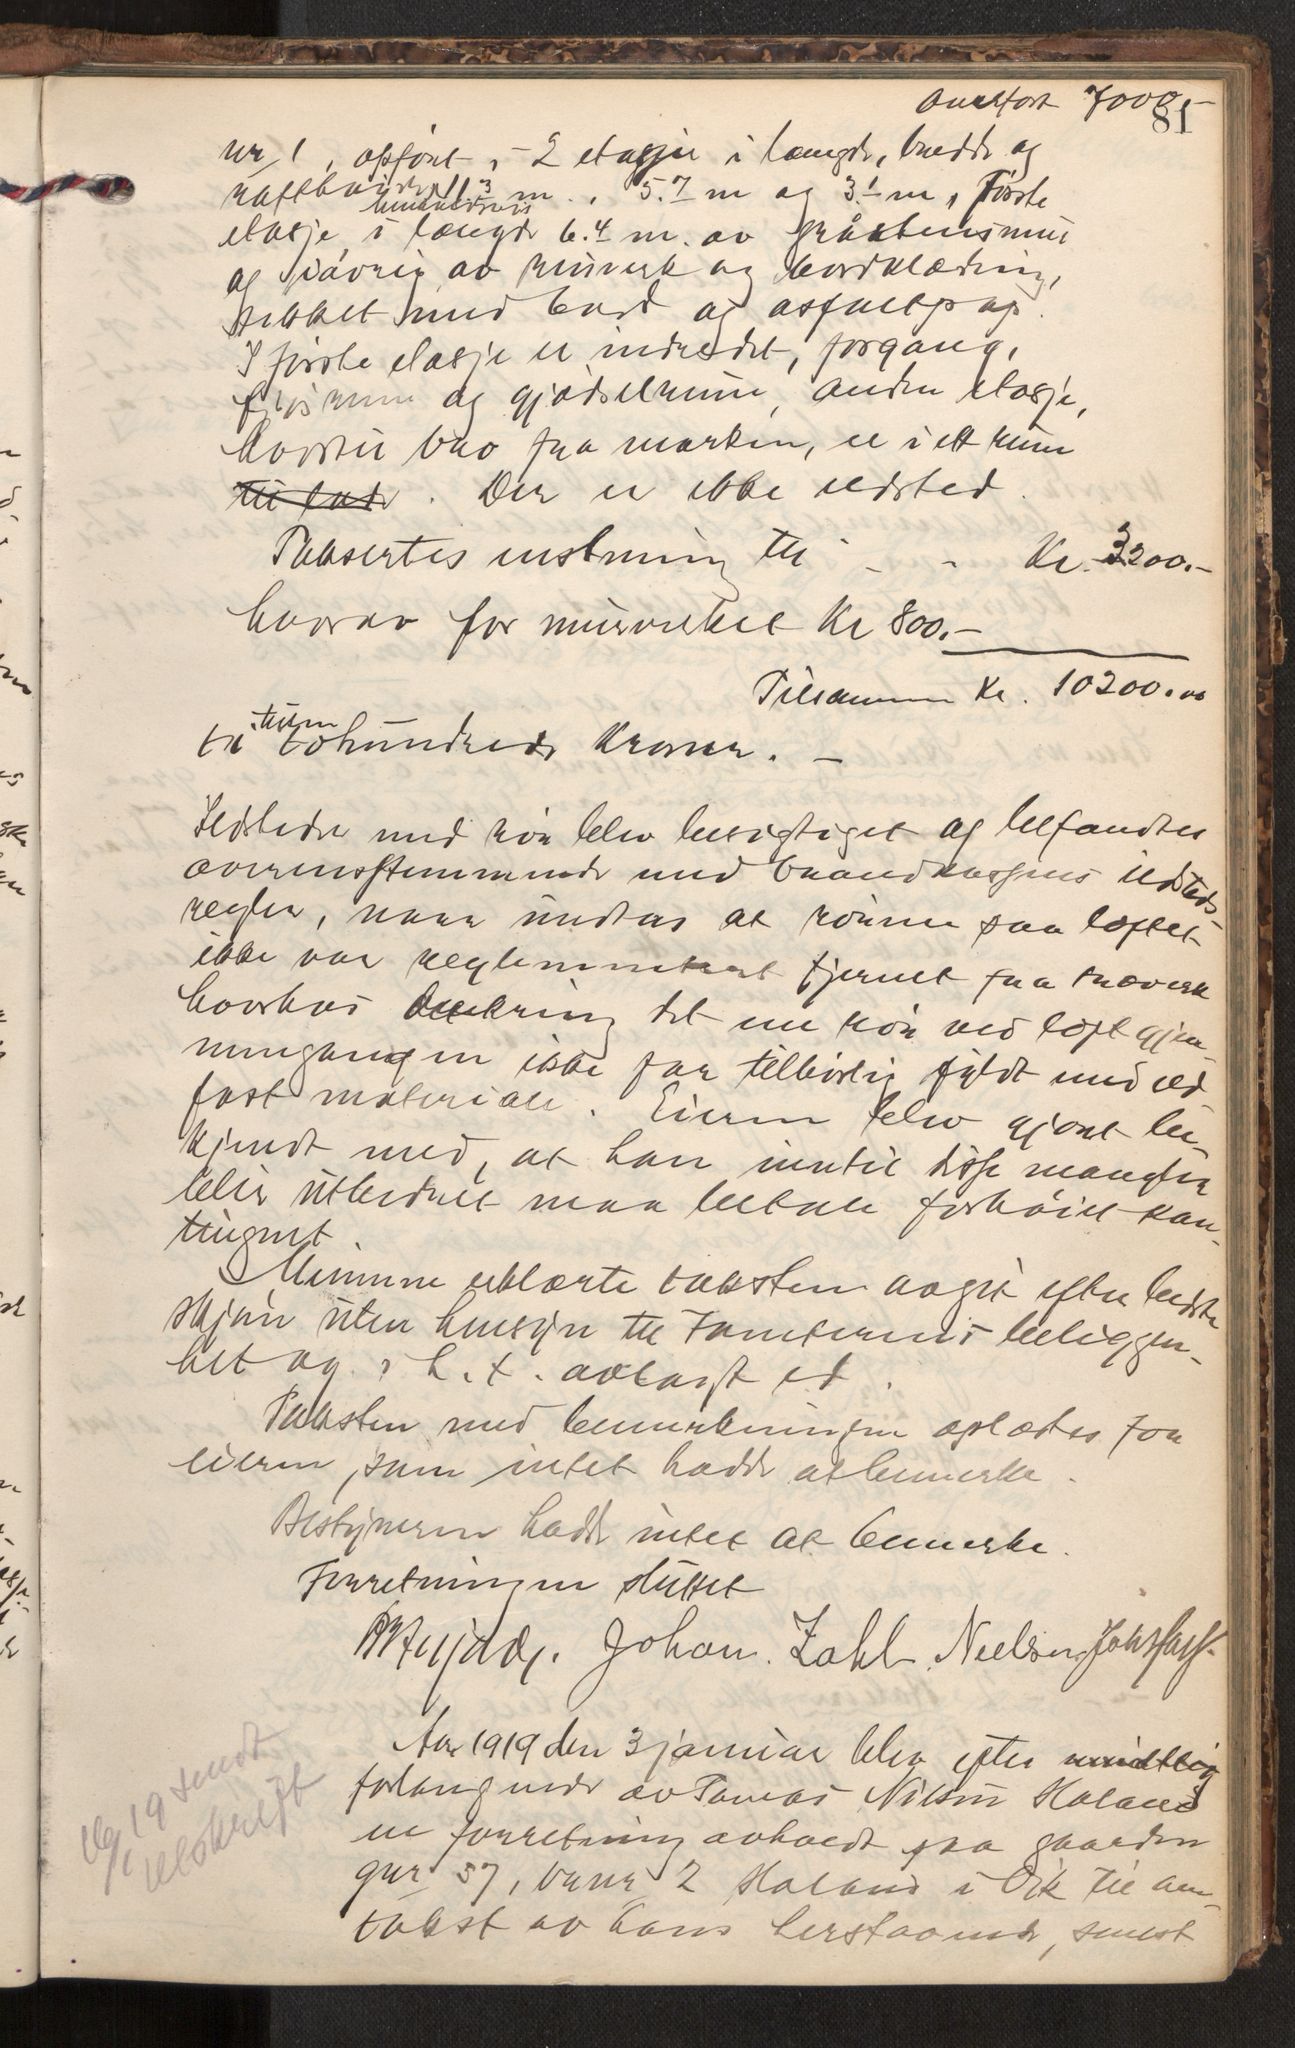 Overført 7000.-
81
nr 1, opført i 2 etasjer i længde, bredde og
rafthøide 11.3 m., 5.7 m og 3.1 m, første
henholdsvis
etasje i længde 6.4 m. av gråstensmur
og iøvrig av murverk og bordklædning,
tekket med bord og asfaltpap.
I første etasje er indredet, forgang,
fjøsrum og gjødselrum, anden etasje,
hvortil bro fra marken, er i ett rum
til lade. Der er ikke ildsted.
Taksertes uten tomt til - - Kr. 3200.-
hvorav for murverket Kr 800.-
Tilsammen Kr. 10200.00
ti tusen tohundrede Kroner. -
Ildstedene med rør blev besigtiget og befandtes
overensstemmende med brandkassens ildsteds-
regler, naar undtas at rørene paa loftet
ikke var reglementært fjernet fra træverk
hvorhos aapning det ene rør ved loft gjen-
nemgangen ikke var tilbørlig fyldt med ild-
fast materiale. Eieren blev gjort be-
kjendt med, at han inntil disse mangler
blir utbedret maa betale forhøiet kon-
tingent.
Mennene erklærte taksten avgit efter bedste
skjøn uten hensyn til tomternes beliggen-
het og i h. t. avlagt ed.
Taksten med bemerkninger oplæstes for
eieren, som intet hadde at bemerke.
Bestyreren hadde intet at bemerke.
Forretningen sluttet
Johan Zahl Nielsen
Aar 1919 den 3 januar blev efter mundtlig
forlangende av Tomas Nilsen Haland
en forretning avholdt paa gaarden
gnr 57, bnr 2 Haland i Vik til om-
takst av hans herstaaende, senest
16/1 19 sendt
utskrift